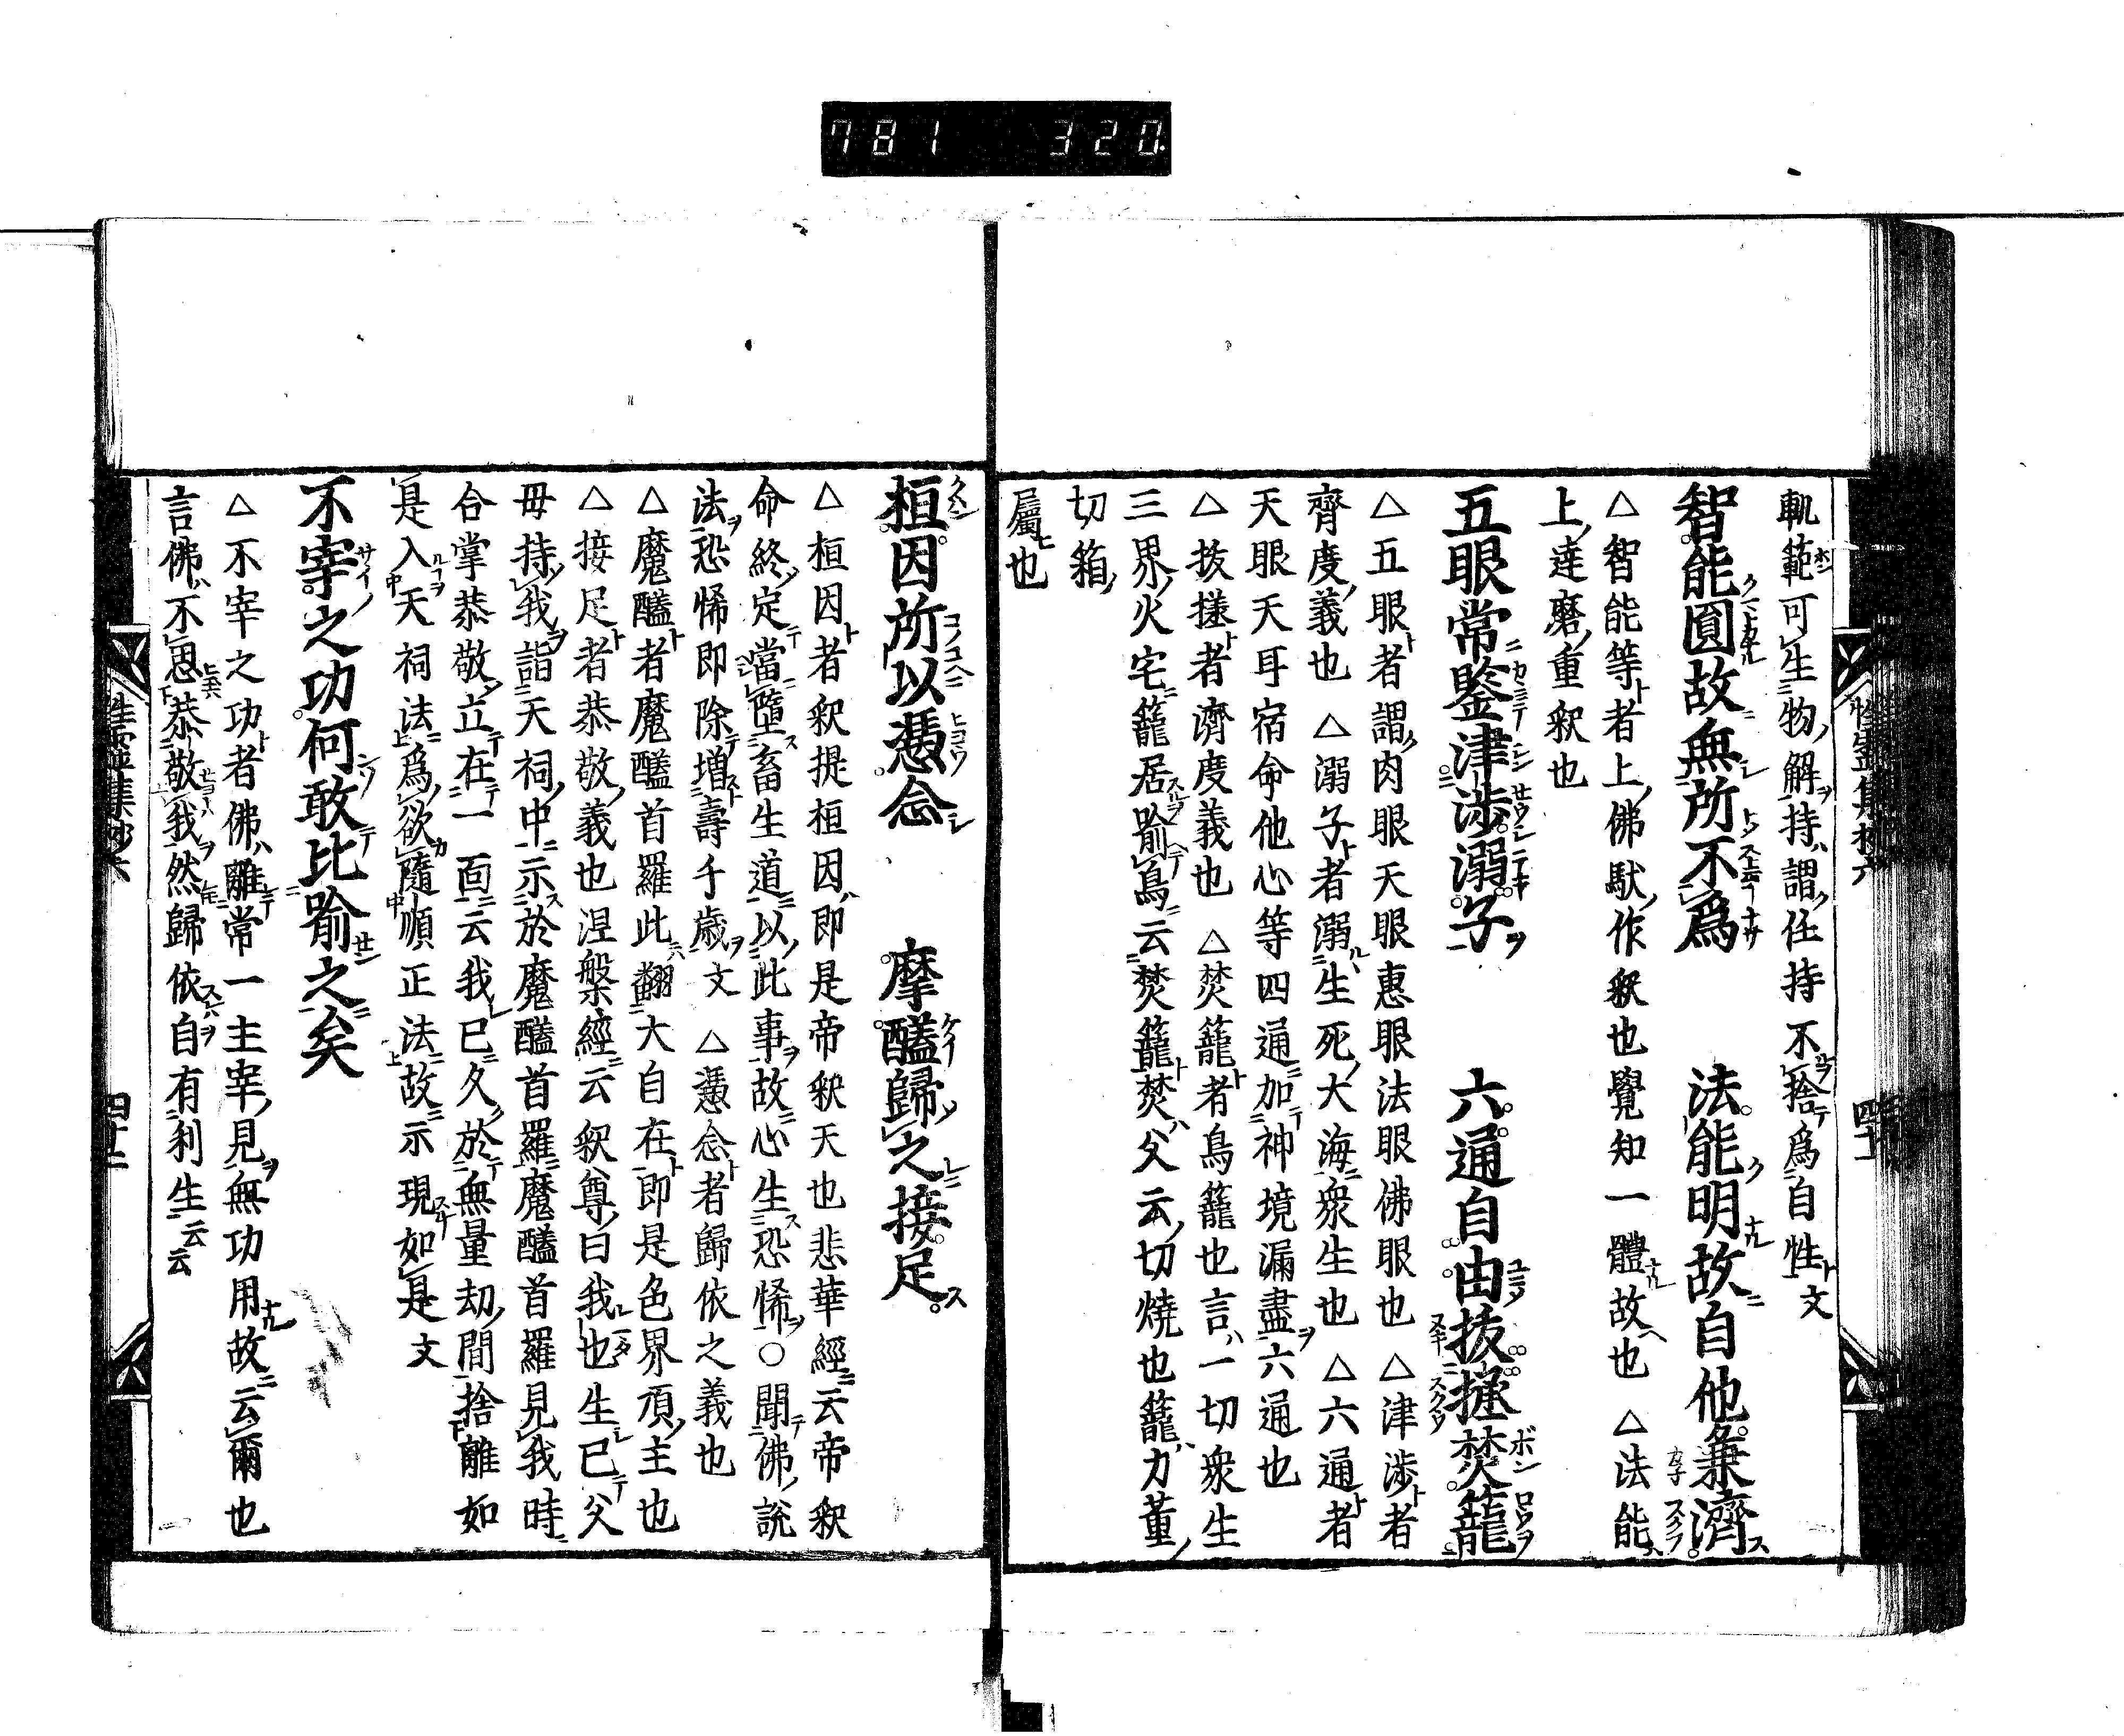 781 320.
軌範可生物解持謂任持不捨爲自性文
智能圓故無所不爲 法能明故自他兼濟
△智能等者上佛馱作釈也覺知一體故也 △法能
上達磨重釈也
五眼常鑒津渉溺子 六通自由抜拯焚籠
△五眼者謂肉眼天眼惠眼法眼佛眼也 △津渉者
齊度義也 △溺子者溺生死大海衆生也 △六通者
天眼天耳宿命他心等四通加神境漏盡六通也
△抜拯者濟度義也 △焚籠者鳥籠也言一切衆生
三界火宅籠居喻鳥云焚籠焚父云切燒也籠力董
切箱
屬也
桓因所以憑念 摩醯歸之接足
△桓因者釈提桓因即是帝釈天也悲華經云帝釈
命終定當墮畜生道以此事故心生恐悕○聞佛說
法恐悕即除増壽千歳文 △憑念者歸依之義也
△魔醯者魔醯首羅此翻大自在即是色界頂主也
△接足者恭敬義也涅槃經云釈尊曰我也生已父
毋持我詣天祠中示於魔醯首羅魔醯首羅見我時
合掌恭敬立在一面云我已久於無量劫間捨離如
是入天祠法爲欲隨順正法故示現如是文
不宰之功何敢比喻之矣
△不宰之功者佛離常一主宰見無功用故云爾也
言佛不思恭敬我然歸依自有利生云云